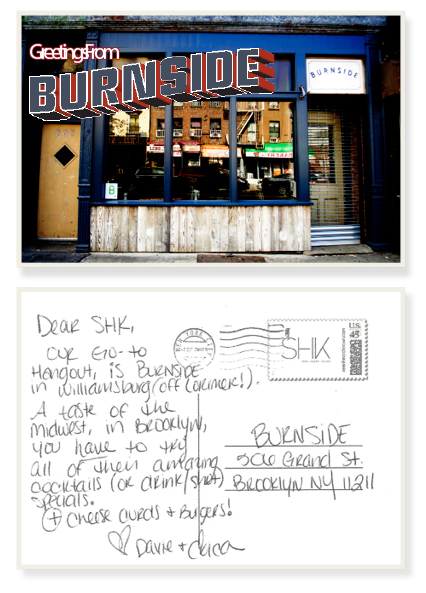 Greetings From
BURNSIDE
BURNSIDE
B
Dear SHK,
our Go-to
Hangout, is BURNSIDE
in Williamsburg (off Lorimer!).
A taste of the
midwest, in Brooklyn,
you have to try
all of their amazing
cocktails (or drink/shot)
specials.
+ cheese curds + Burgers!
Davie +
NEW YORK
SHK
U.S.
45
BURNSIDE
506 Grand St.
BROOKLYN NY 11211